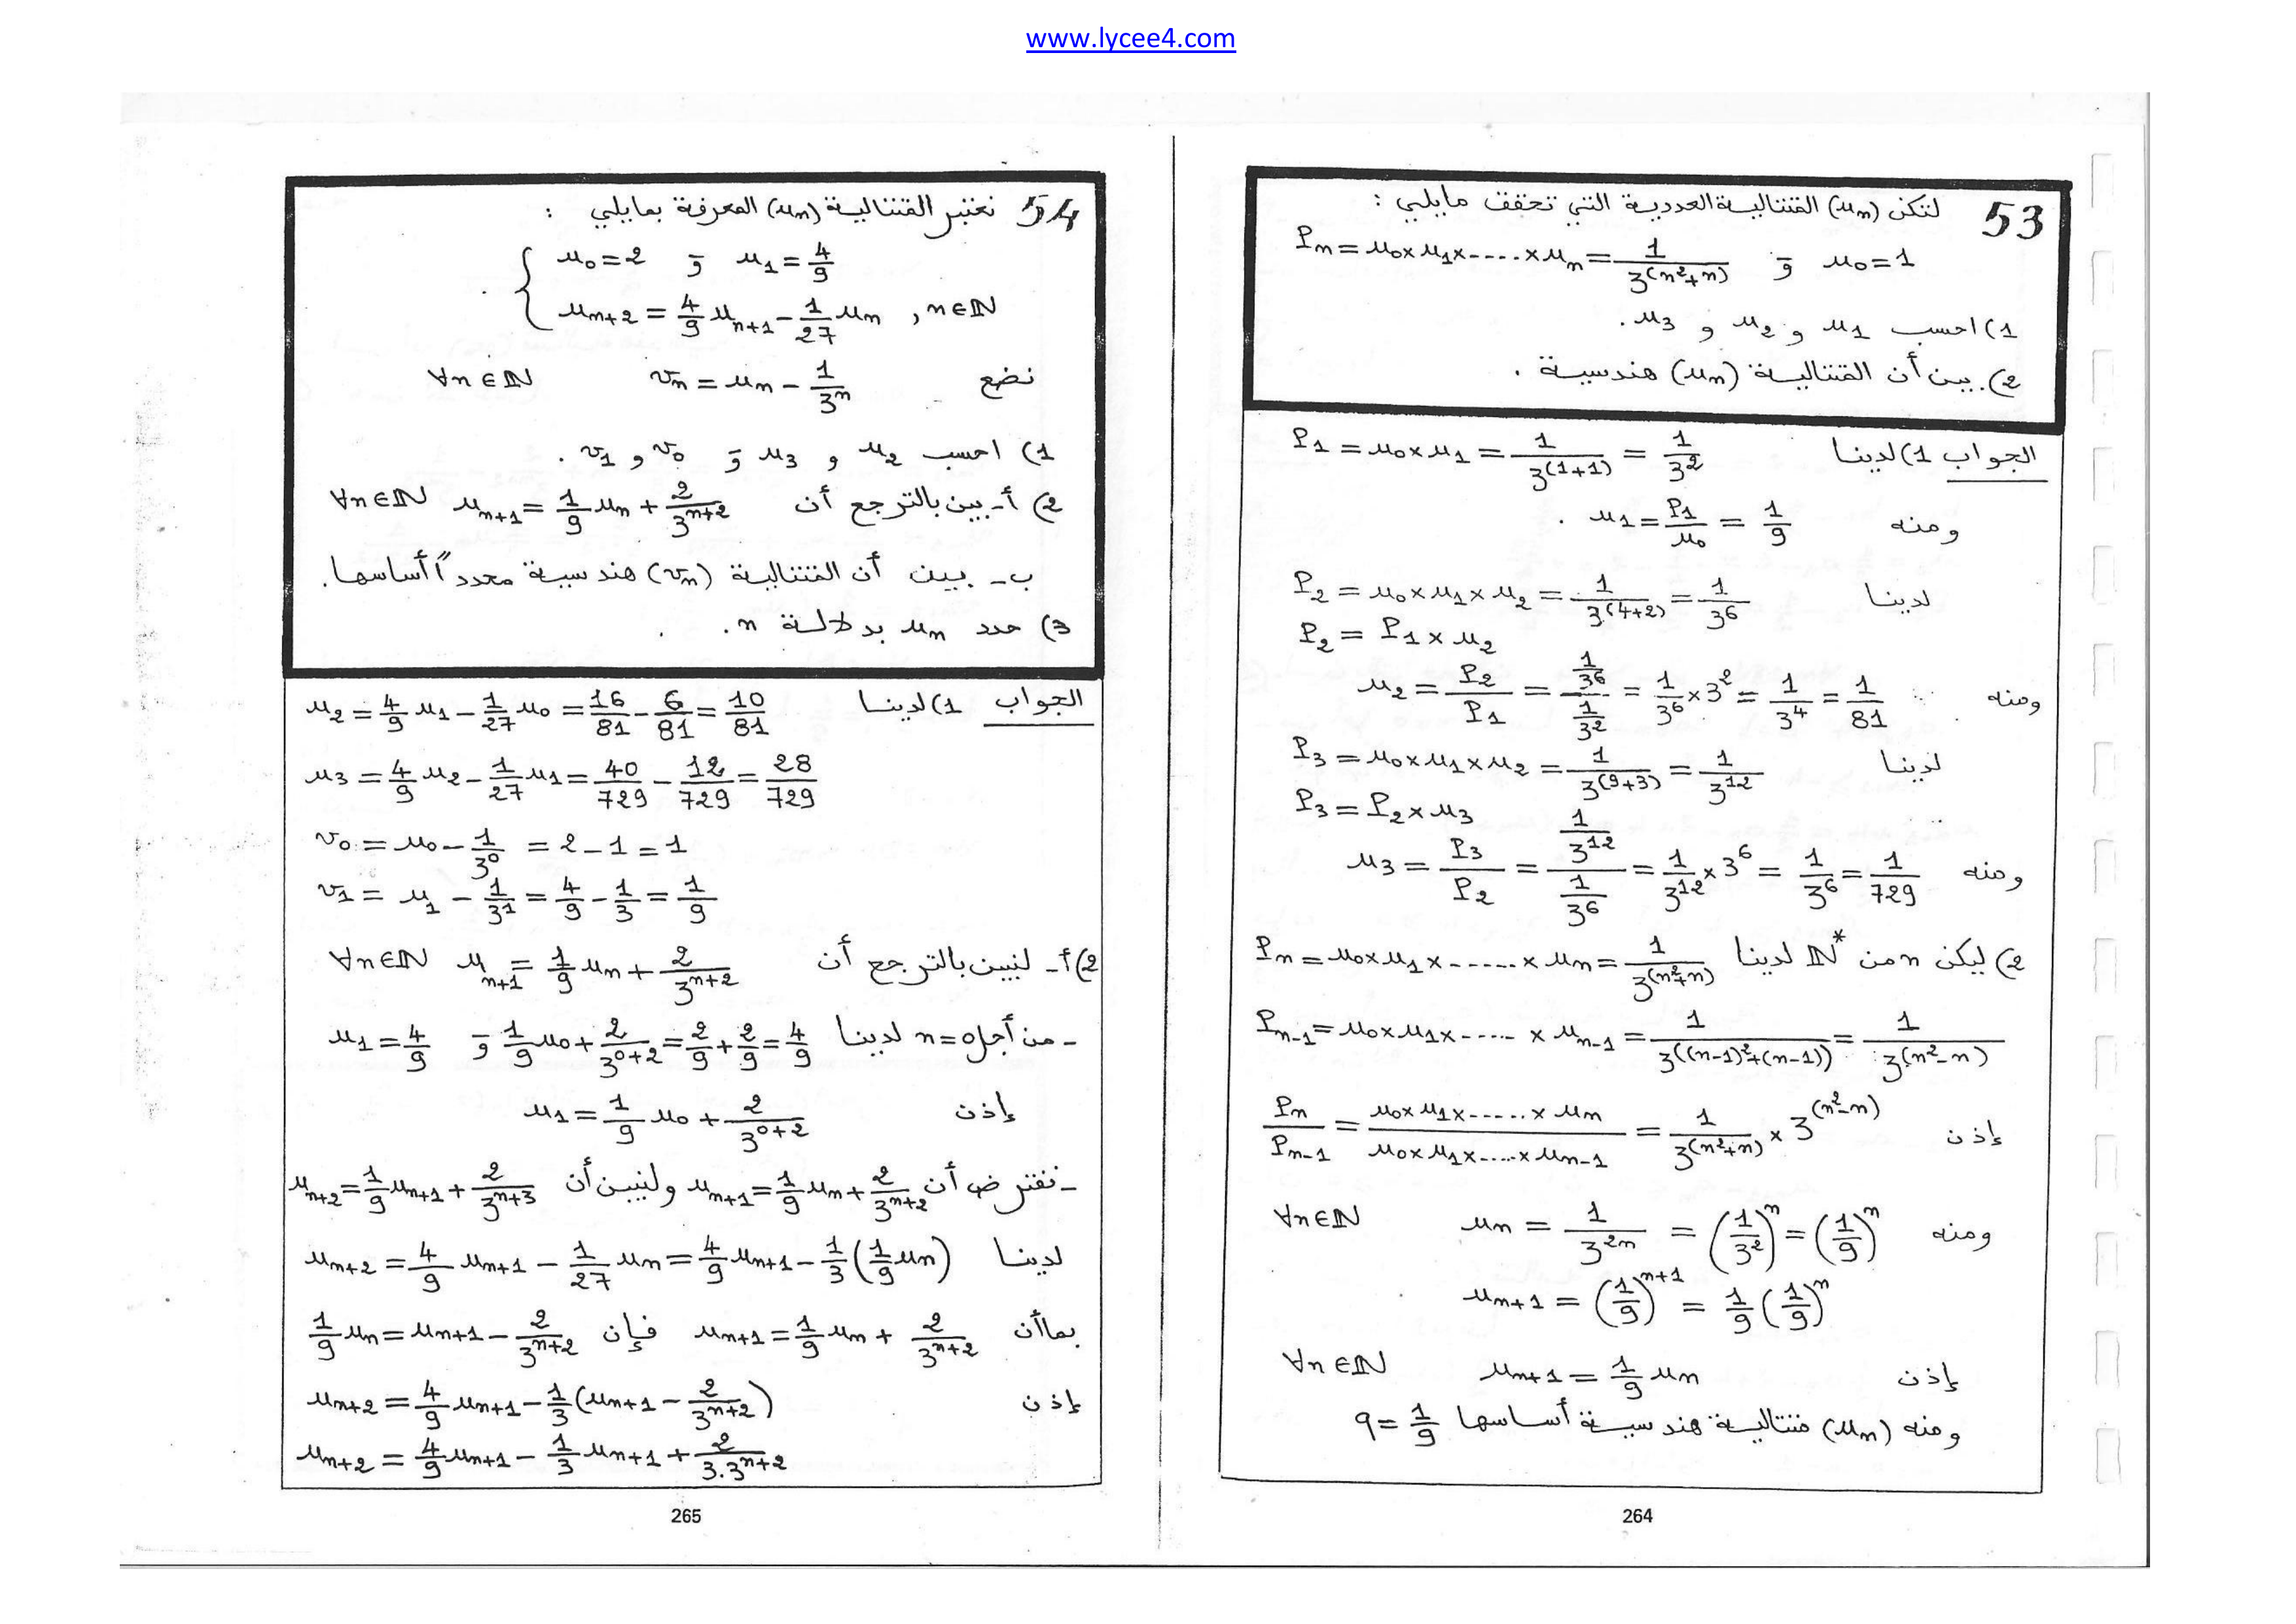 www.lycee4.com
53 لتكن (uₙ) المتتالية العددية التي تحقق مايلي :
u₀=1 و Pₙ = u₀×u₁×-----×uₙ = 1/3^(n²+n)
1) احسب u₁ و u₂ و u₃ .
2) بين أن المتتالية (uₙ) هندسية .
الجواب 1) لدينا P₁ = u₀×u₁ = 1/3^(1+1) = 1/3²
ومنه u₁ = P₁/u₀ = 1/9 .
لدينا P₂ = u₀×u₁×u₂ = 1/3^(4+2) = 1/3⁶
P₂ = P₁×u₂
ومنه u₂ = P₂/P₁ = (1/3⁶)/(1/3²) = 1/3⁶ × 3² = 1/3⁴ = 1/81
لدينا P₃ = u₀×u₁×u₂ = 1/3^(9+3) = 1/3¹²
P₃ = P₂×u₃
ومنه u₃ = P₃/P₂ = (1/3¹²)/(1/3⁶) = 1/3¹² × 3⁶ = 1/3⁶ = 1/729
2) ليكن n من ℕ* لدينا Pₙ = u₀×u₁×------×uₙ = 1/3^(n²+n)
Pₙ₋₁ = u₀×u₁×-----×uₙ₋₁ = 1/3^((n-1)²+(n-1)) = 1/3^(n²-n)
إذن Pₙ/Pₙ₋₁ = (u₀×u₁×------×uₙ)/(u₀×u₁×-----×uₙ₋₁) = 1/3^(n²+n) × 3^(n²-n)
ومنه uₙ = 1/3²ⁿ = (1/3²)ⁿ = (1/9)ⁿ ∀n∈ℕ
uₙ₊₁ = (1/9)ⁿ⁺¹ = 1/9 (1/9)ⁿ
إذن uₙ₊₁ = 1/9 uₙ ∀n∈ℕ
ومنه (uₙ) متتالية هندسية أساسها q = 1/9
264
54 نعتبر المتتالية (uₙ) المعرفة بمايلي :
u₀=2 و u₁ = 4/9
uₙ₊₂ = 4/9 uₙ₊₁ - 1/27 uₙ , n∈ℕ
نضع vₙ = uₙ - 1/3ⁿ ∀n∈ℕ
1) احسب u₂ و u₃ و v₀ و v₁ .
2) أ- بين بالترجع أن uₙ₊₁ = 1/9 uₙ + 2/3ⁿ⁺² ∀n∈ℕ
ب- بين أن المتتالية (vₙ) هندسية محدداً أساسها .
3) حدد uₙ بدلالة n .
الجواب 1) لدينا u₂ = 4/9 u₁ - 1/27 u₀ = 16/81 - 6/81 = 10/81
u₃ = 4/9 u₂ - 1/27 u₁ = 40/729 - 12/729 = 28/729
v₀ = u₀ - 1/3⁰ = 2-1 = 1
v₁ = u₁ - 1/3¹ = 4/9 - 1/3 = 1/9
2) أ- لنبين بالترجع أن uₙ₊₁ = 1/9 uₙ + 2/3ⁿ⁺² ∀n∈ℕ
- من أجل n=0 لدينا 1/9 u₀ + 2/3⁰⁺² = 2/9 + 2/9 = 4/9 و u₁ = 4/9
إذن u₁ = 1/9 u₀ + 2/3⁰⁺²
- نفترض أن uₙ₊₁ = 1/9 uₙ + 2/3ⁿ⁺² ولنبين أن uₙ₊₂ = 1/9 uₙ₊₁ + 2/3ⁿ⁺³
لدينا uₙ₊₂ = 4/9 uₙ₊₁ - 1/27 uₙ = 4/9 uₙ₊₁ - 1/3 (1/9 uₙ)
بما أن uₙ₊₁ = 1/9 uₙ + 2/3ⁿ⁺² فإن 1/9 uₙ = uₙ₊₁ - 2/3ⁿ⁺²
إذن uₙ₊₂ = 4/9 uₙ₊₁ - 1/3 (uₙ₊₁ - 2/3ⁿ⁺²)
uₙ₊₂ = 4/9 uₙ₊₁ - 1/3 uₙ₊₁ + 2/3.3ⁿ⁺²
265